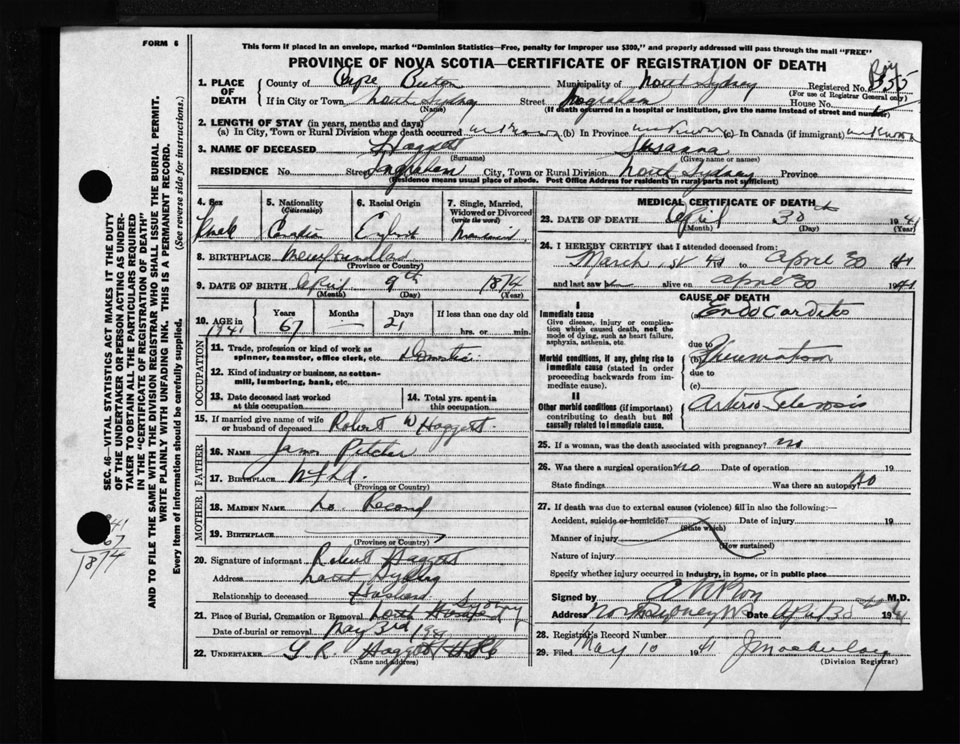 FORM 6
This form if placed in an envelope, marked "Dominion Statistics—Free, penalty for improper use $300," and properly addressed will pass through the mail "FREE"
PROVINCE OF NOVA SCOTIA—CERTIFICATE OF REGISTRATION OF DEATH
1. PLACE OF DEATH
County of Cape Breton Municipality of North Sydney Registered No.
(For use of Registrar General only)
If in City or Town, North Sydney Street House No.
(Name) (If death occurred in a hospital or institution, give the name instead of street and number)
2. LENGTH OF STAY (in years, months and days)
(a) In City, Town or Rural Division where death occurred unknown (b) In Province unknown (c) In Canada (if immigrant) unknown
3. NAME OF DECEASED Haggett Susanna
(Surname) (Given name or names)
RESIDENCE No. Street Ingraham City, Town or Rural Division North Sydney Province
(Residence means usual place of abode. Post Office Address for residents in rural parts not sufficient)
4. Sex
5. Nationality (Citizenship) Canadian
6. Racial Origin English
7. Single, Married, Widowed or Divorced (write the word) Married
8. BIRTHPLACE Newfoundland
(Province or Country)
9. DATE OF BIRTH April 9th 1874
(Month) (Day) (Year)
10. AGE in 1941 Years 67 Months — Days 21 If less than one day old
hrs. or min.
OCCUPATION
11. Trade, profession or kind of work as spinner, teamster, office clerk, etc. Domestic
12. Kind of industry or business, as cotton-mill, lumbering, bank, etc.
13. Date deceased last worked at this occupation
14. Total yrs. spent in this occupation
15. If married give name of wife or husband of deceased Robert W Haggett
FATHER
16. NAME James Pitcher
17. BIRTHPLACE Nfld
(Province or Country)
MOTHER
18. MAIDEN NAME no Record
19. BIRTHPLACE
(Province or Country)
20. Signature of informant Robert Haggett
Address North Sydney
Relationship to deceased Husband
21. Place of Burial, Cremation or Removal North Sydney
Date of burial or removal May 3rd 1941
22. UNDERTAKER
(Name and address)
MEDICAL CERTIFICATE OF DEATH
23. DATE OF DEATH April 30th 1941
(Month) (Day) (Year)
24. I HEREBY CERTIFY that I attended deceased from:
March 41 to April 30 41
and last saw alive on April 30 1941
CAUSE OF DEATH
I
Immediate cause
Give disease, injury or complication which caused death, not the mode of dying, such as heart failure, asphyxia, asthenia, etc.
(a) Endocarditis
due to
Morbid conditions, if any, giving rise to immediate cause (stated in order proceeding backwards from immediate cause).
(b) Rheumatism
due to
(c)
II
Other morbid conditions (if important) contributing to death but not causally related to immediate cause.
Arterio Sclerosis
25. If a woman, was the death associated with pregnancy? no
26. Was there a surgical operation no Date of operation 19
State findings Was there an autopsy No
27. If death was due to external causes (violence) fill in also the following:
Accident, suicide or homicide? Date of injury 19
(State which)
Manner of injury
(How sustained)
Nature of injury
Specify whether injury occurred in industry, in home, or in public place
Signed by M.D.
Address North Sydney NS Date April 30 1941
28. Registrar's Record Number
29. Filed May 10 1941
(Division Registrar)
SEC. 46—VITAL STATISTICS ACT MAKES IT THE DUTY OF THE UNDERTAKER OR PERSON ACTING AS UNDERTAKER TO OBTAIN ALL THE PARTICULARS REQUIRED IN THE "CERTIFICATE OF REGISTRATION OF DEATH" AND TO FILE THE SAME WITH THE DIVISION REGISTRAR WHO SHALL ISSUE THE BURIAL PERMIT.
WRITE PLAINLY WITH UNFADING INK. THIS IS A PERMANENT RECORD.
Every item of information should be carefully supplied. (See reverse side for instructions.)
1941
67
1874